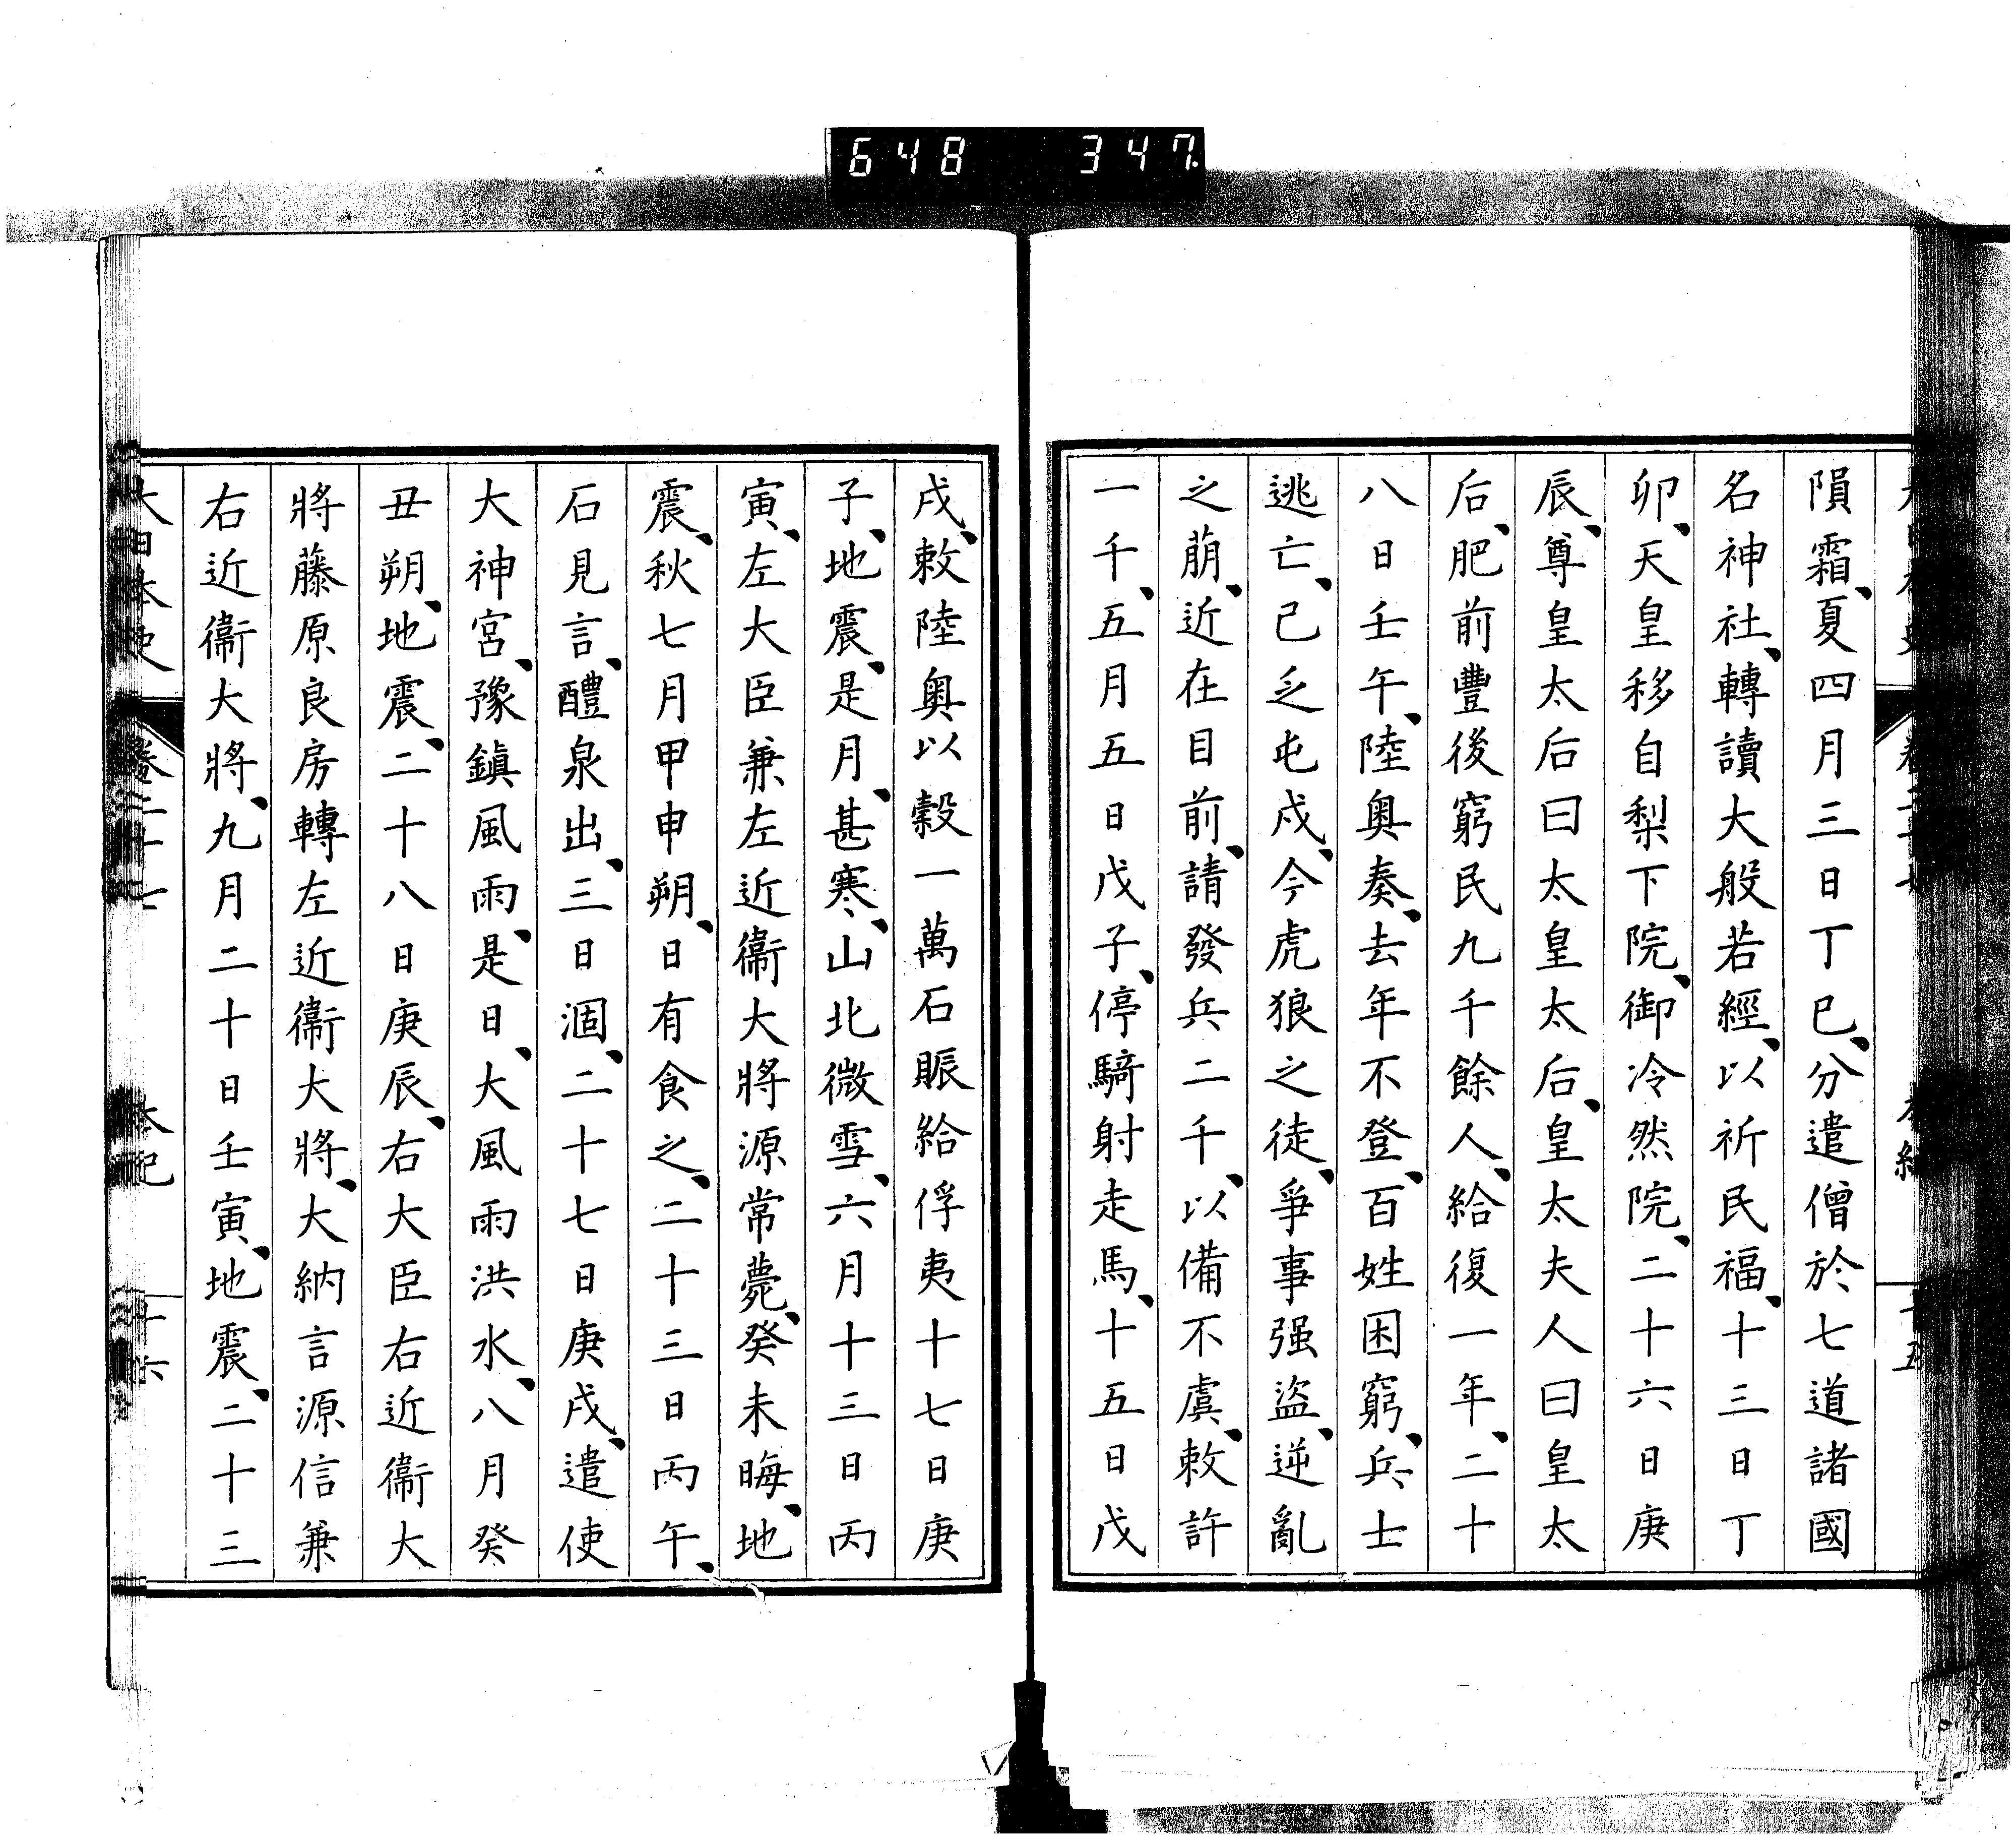 648 347
隕霜、夏四月三日丁巳、分遣僧於七道諸國
名神社、轉讀大般若經、以祈民福、十三日丁
卯、天皇移自梨下院、御冷然院、二十六日庚
辰、尊皇太后曰太皇太后、皇太夫人曰皇太
后、肥前豐後窮民九千餘人、給復一年、二十
八日壬午、陸奧奏、去年不登、百姓困窮、兵士
逃亡、己乏屯戍、今虎狼之徒、爭事强盜、逆亂
之萠、近在目前、請發兵二千、以備不虞、敕許
一千、五月五日戊子、停騎射走馬、十五日戊
戌、敕陸奧以穀一萬石賑給俘夷十七日庚
子、地震、是月、甚寒、山北微雪、六月十三日丙
寅、左大臣兼左近衞大將源常薨、癸未晦、地
震、秋七月甲申朔、日有食之、二十三日丙午、
石見言、醴泉出、三日涸、二十七日庚戌、遣使
大神宮、豫鎭風雨、是日、大風雨洪水、八月癸
丑朔、地震、二十八日庚辰、右大臣右近衞大
將藤原良房轉左近衞大將、大納言源信兼
右近衞大將、九月二十日壬寅、地震、二十三
大日本史 卷二十七 本紀 十六